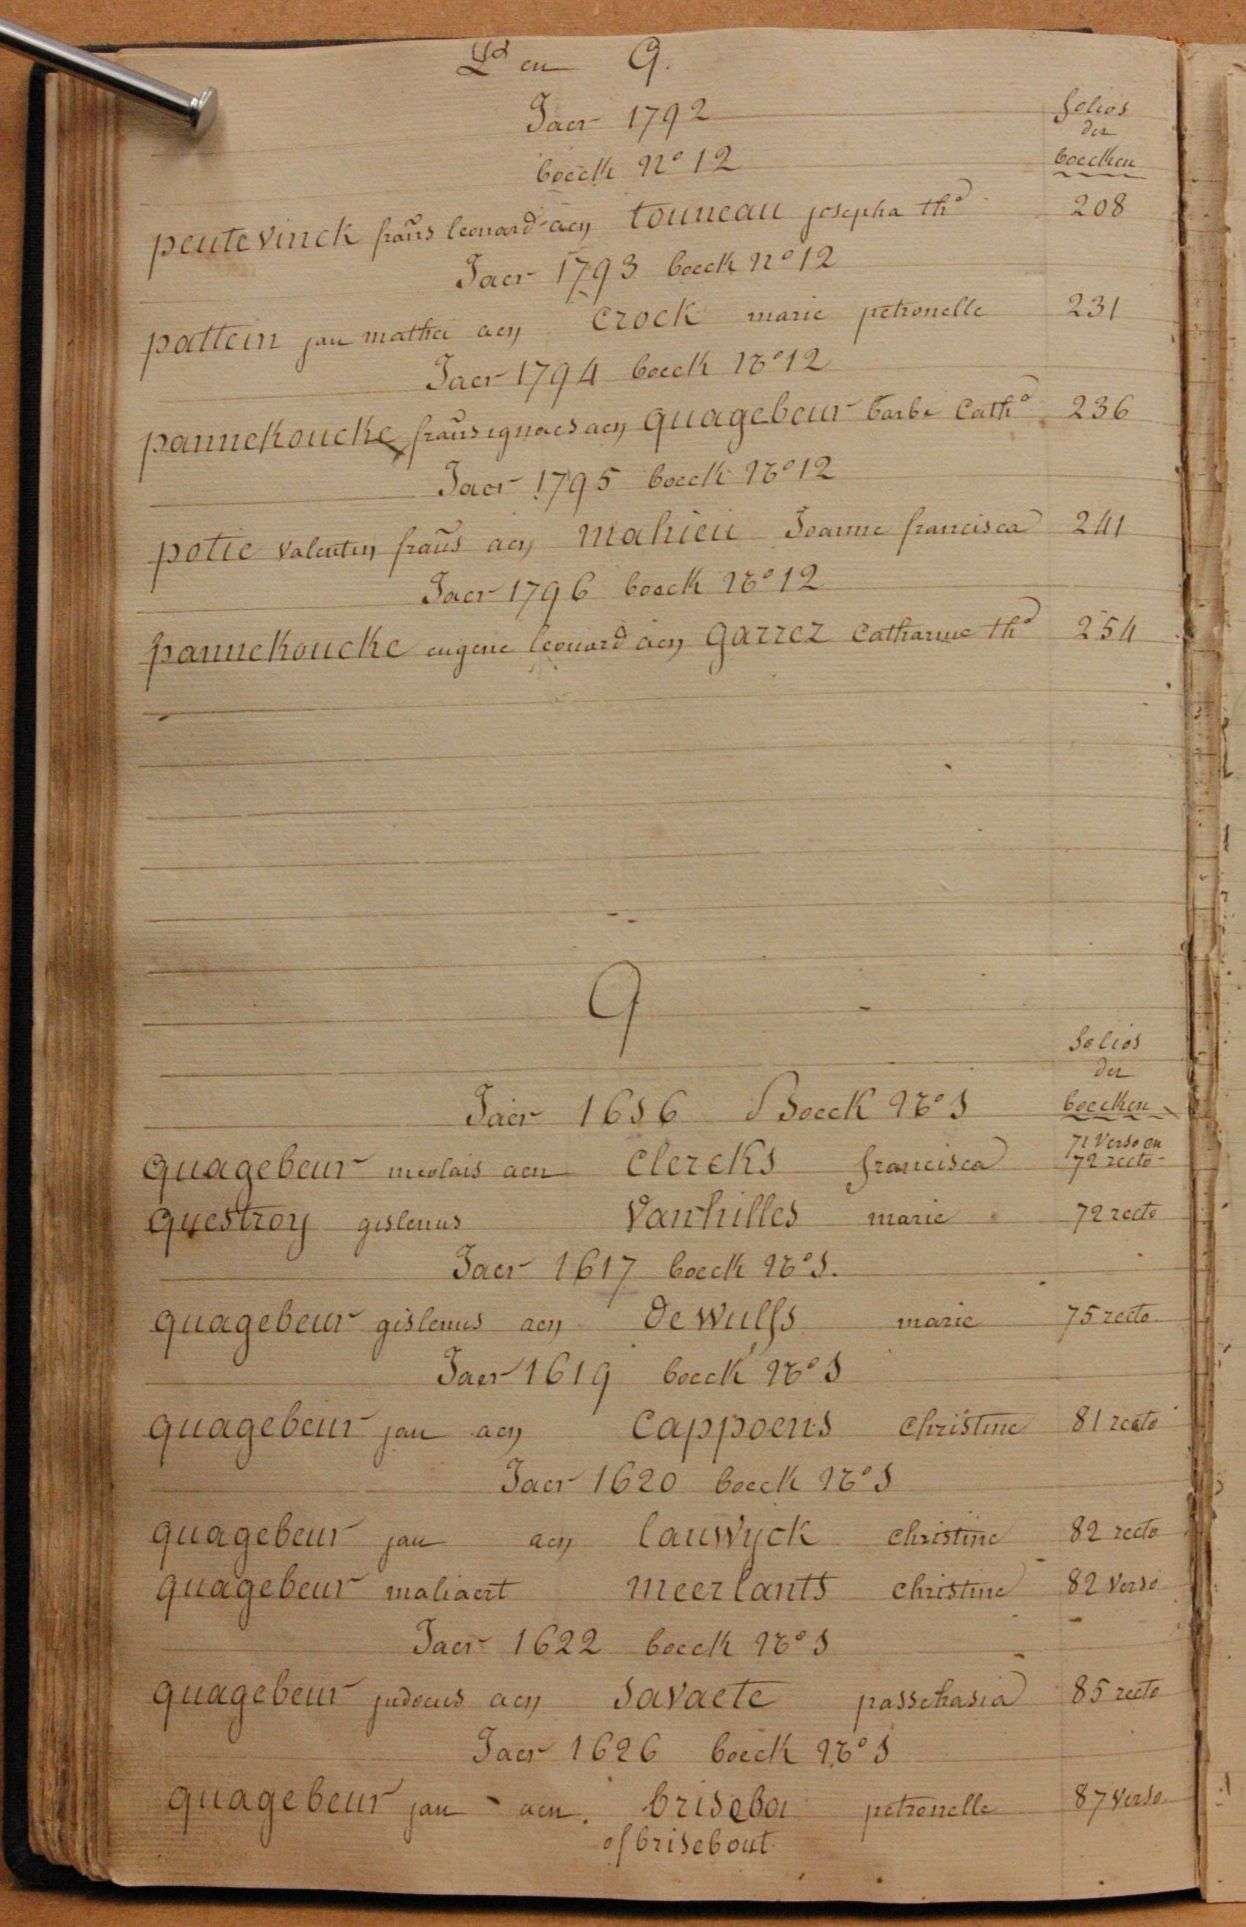 P en Q.
Jaer 1792
folios
der
boecken
boeck N° 12
peutevinck frañs leonard aen touneau josepha th^a 208
Jaer 1793 boeck N° 12
pattein jan mathei aen crock marie petronelle 231
Jaer 1794 boeck N° 12
pannekoucke frañs ignaes aen quagebeur barbe Cath^a 236
Jaer 1795 boeck N° 12
potie valentyn frañs aen mahieu Joanne francisca 241
Jaer 1796 boeck N° 12
pannekoucke eugene leonard aen garrez catharine th^a 254
Q
folios
der
boecken
Jaer 1616 Boeck N° 1
71 verso en
quagebeur nicolais aen clercks francisca 72 recto
questroy gislenus vanhilles marie 72 recto
Jaer 1617 boeck N° 1.
quagebeur gislenus aen de wulfs marie 75 recto
Jaer 1619 boeck N° 1
quagebeur jan aen cappoens christine 81 recto
Jaer 1620 boeck N° 1
quagebeur jan aen lauwyck christine 82 recto
quagebeur maliaert meerlants christine 82 verso
Jaer 1622 boeck N° 1
quagebeur judocus aen savaete passchasia 85 recto
Jaer 1626 boeck N° 1
quagebeur jan aen briseboi petronelle 87 verso
of brisebout